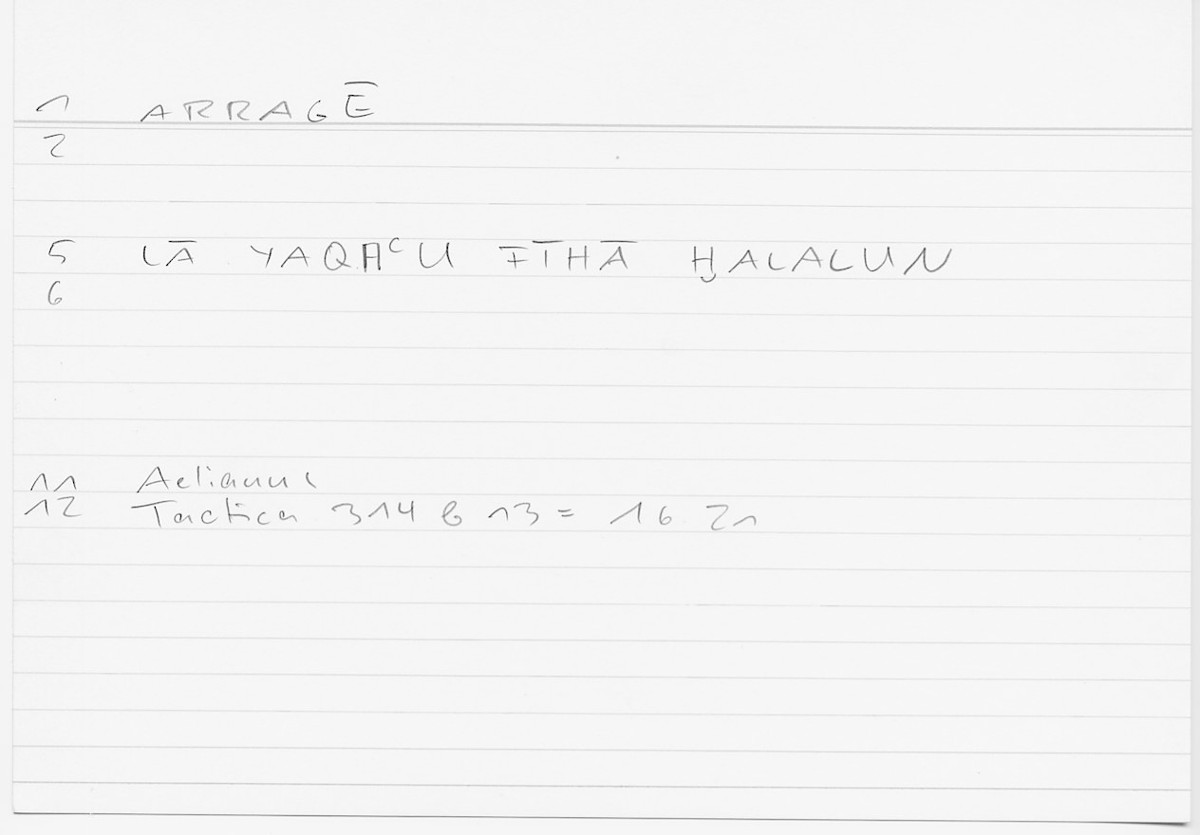 1 ARRAGĒ
2
5 LĀ YAQAʿU FĪHĀ ḪALALUN
6
11 Aelianus
12 Tactica 314 6 13 = 16 21